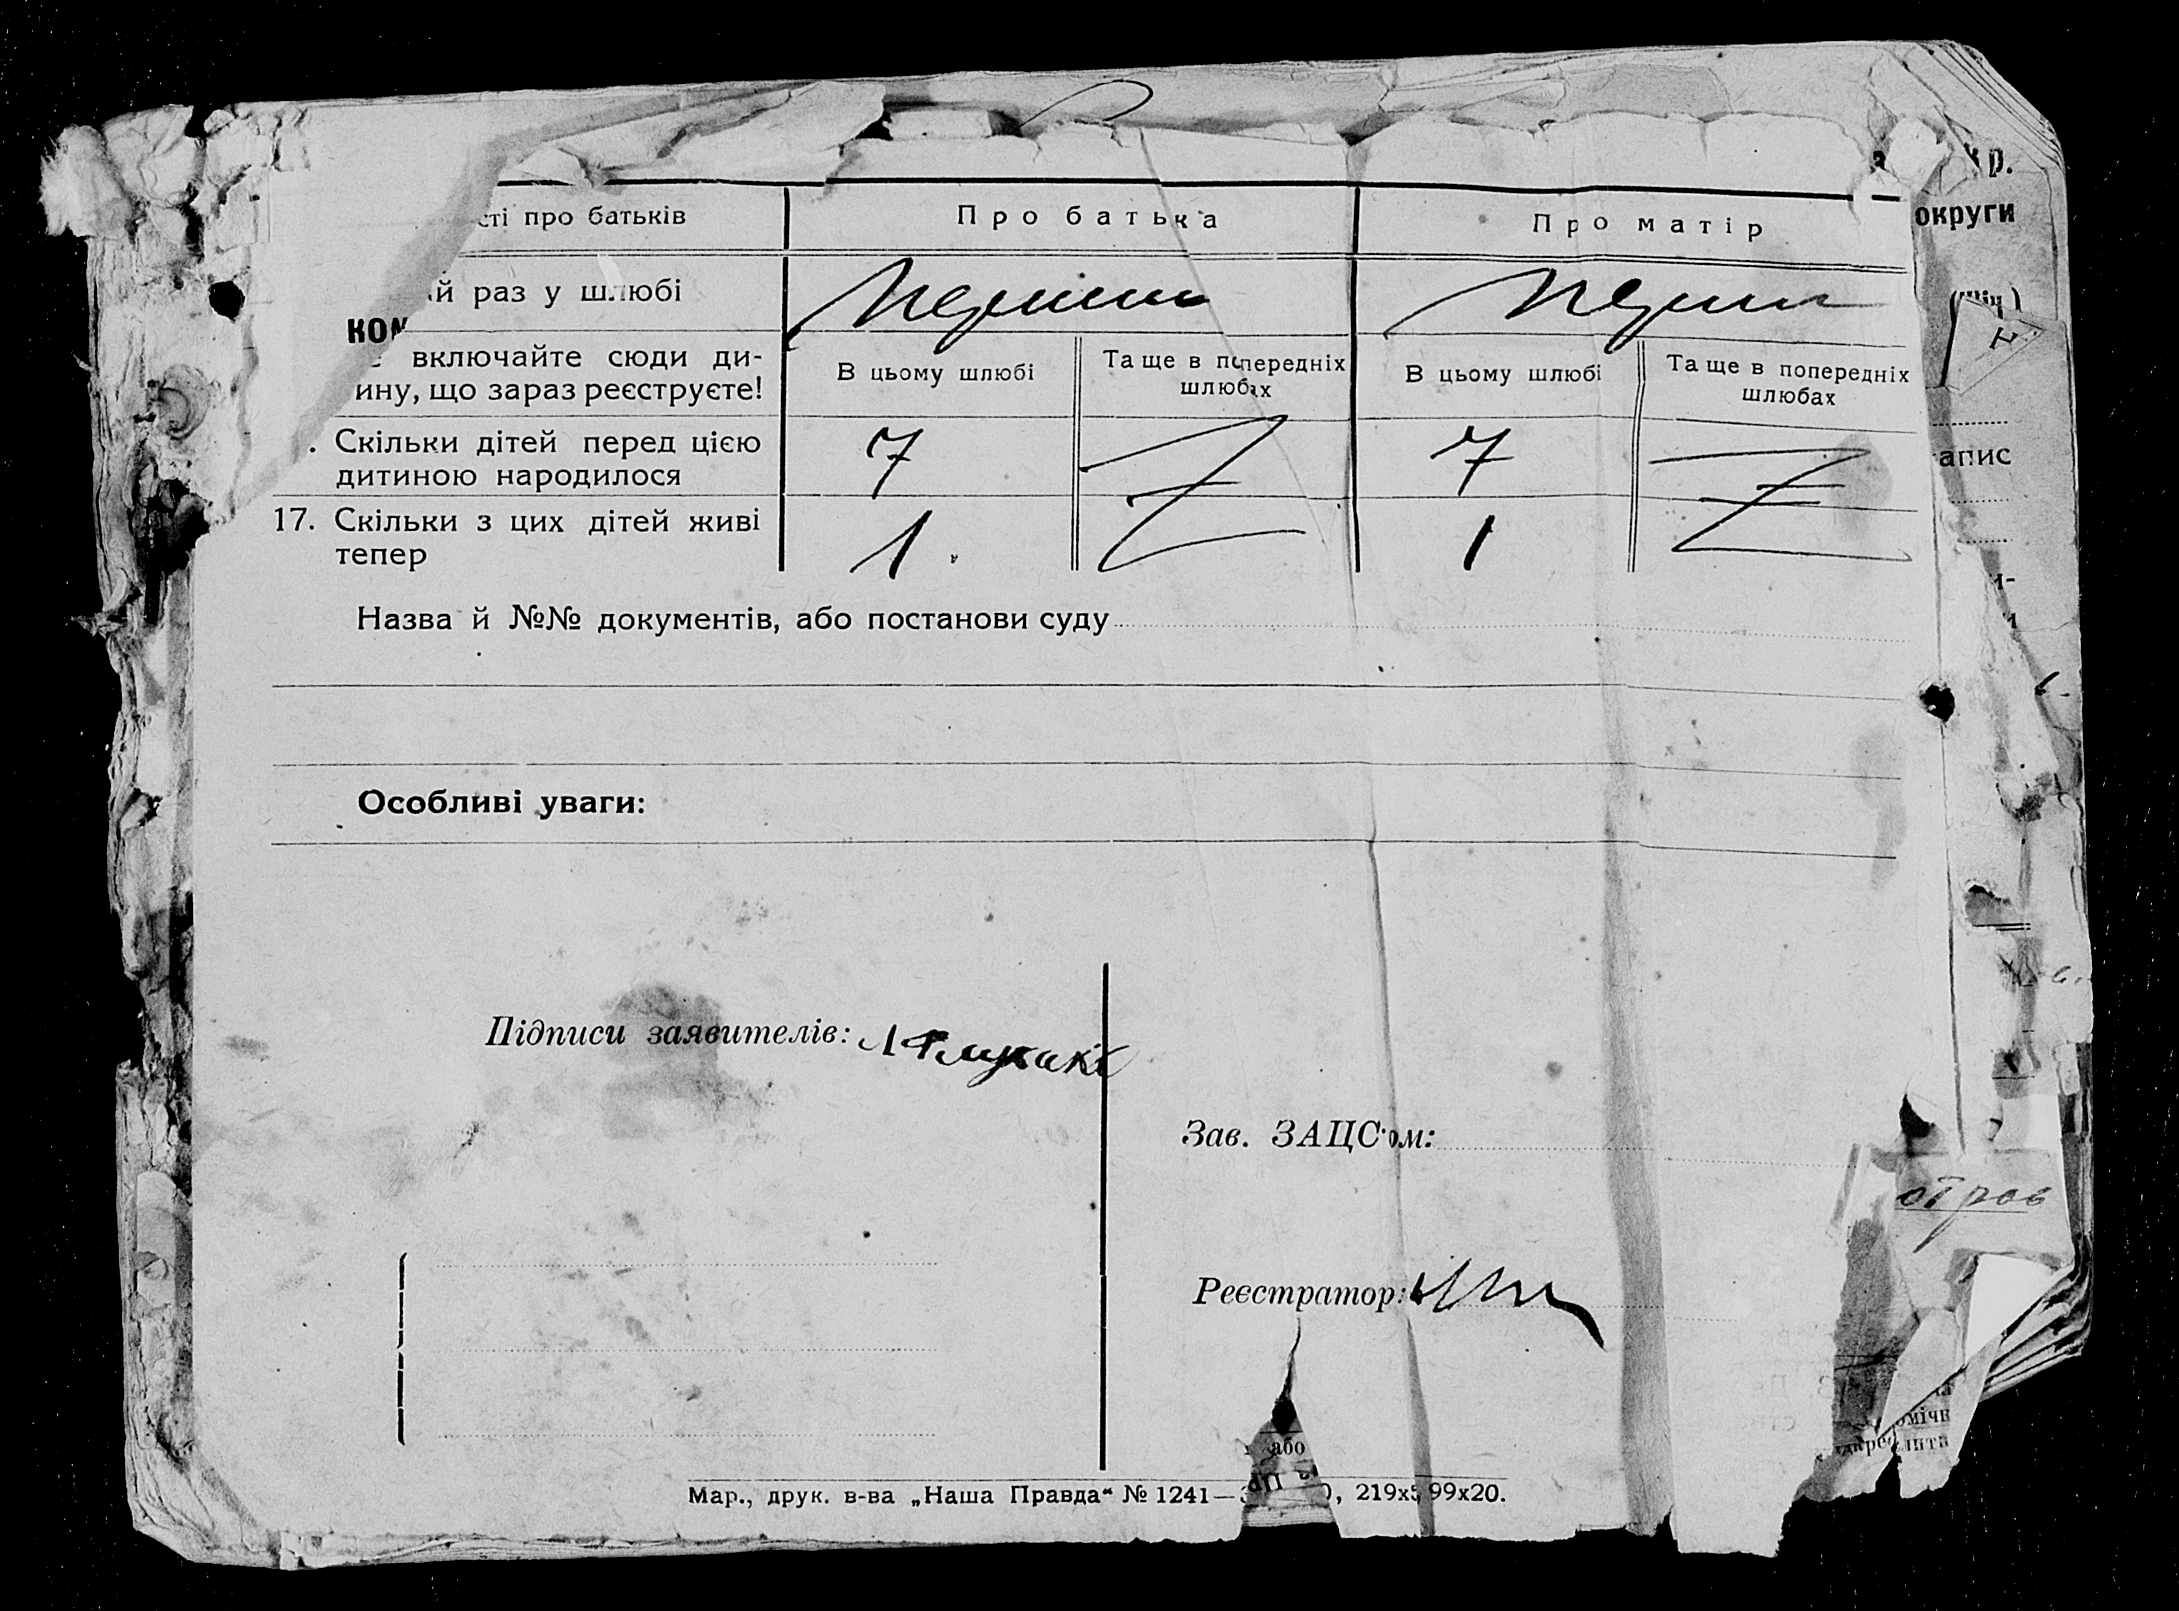 кр.
сті про батьків
Про батька
Про матір
округи
ий раз у шлюбі
Перший
Перший
КОМ
включайте сюди ди-
ину, що зараз реєструєте!
В цьому шлюбі
Та ще в попередніх
шлюбах
В цьому шлюбі
Та ще в попередніх
шлюбах
. Скільки дітей перед цією
дитиною народилося
7
7
апис
17. Скільки з цих дітей живі
тепер
1.
1
Назва й №№ документів, або постанови суду
Особливі уваги:
Підписи заявителів:
Зав. ЗАЦС'ом:
отров
Реєстратор:
омічн
або
Мар., друк. в-ва „Наша Правда“ № 1241—3 0, 219x5,99x20.